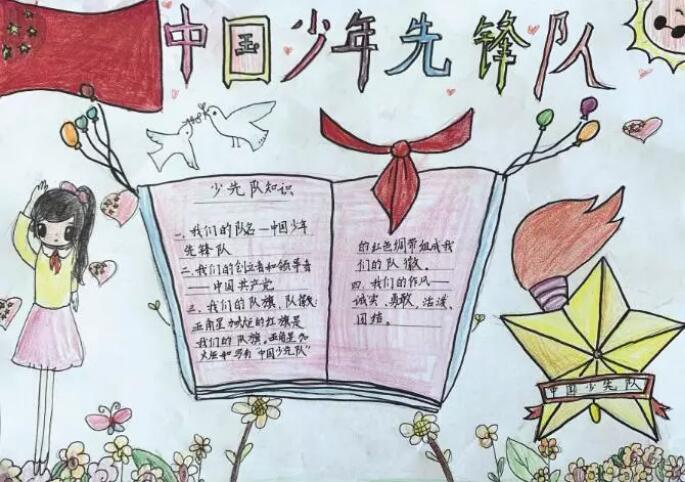 中国少年先锋队
少先队知识
一、我们的队名—中国少年
先锋队
二、我们的创立者和领导者
——中国共产党
三、我们的队旗、队徽:
五角星加火炬的红旗是
我们的队旗。五角星加
火炬和写有"中国少先队"
的红色绸带组成我
们的队徽。
四、我们的作风—
诚实、勇敢、活泼、
团结。
中国少先队